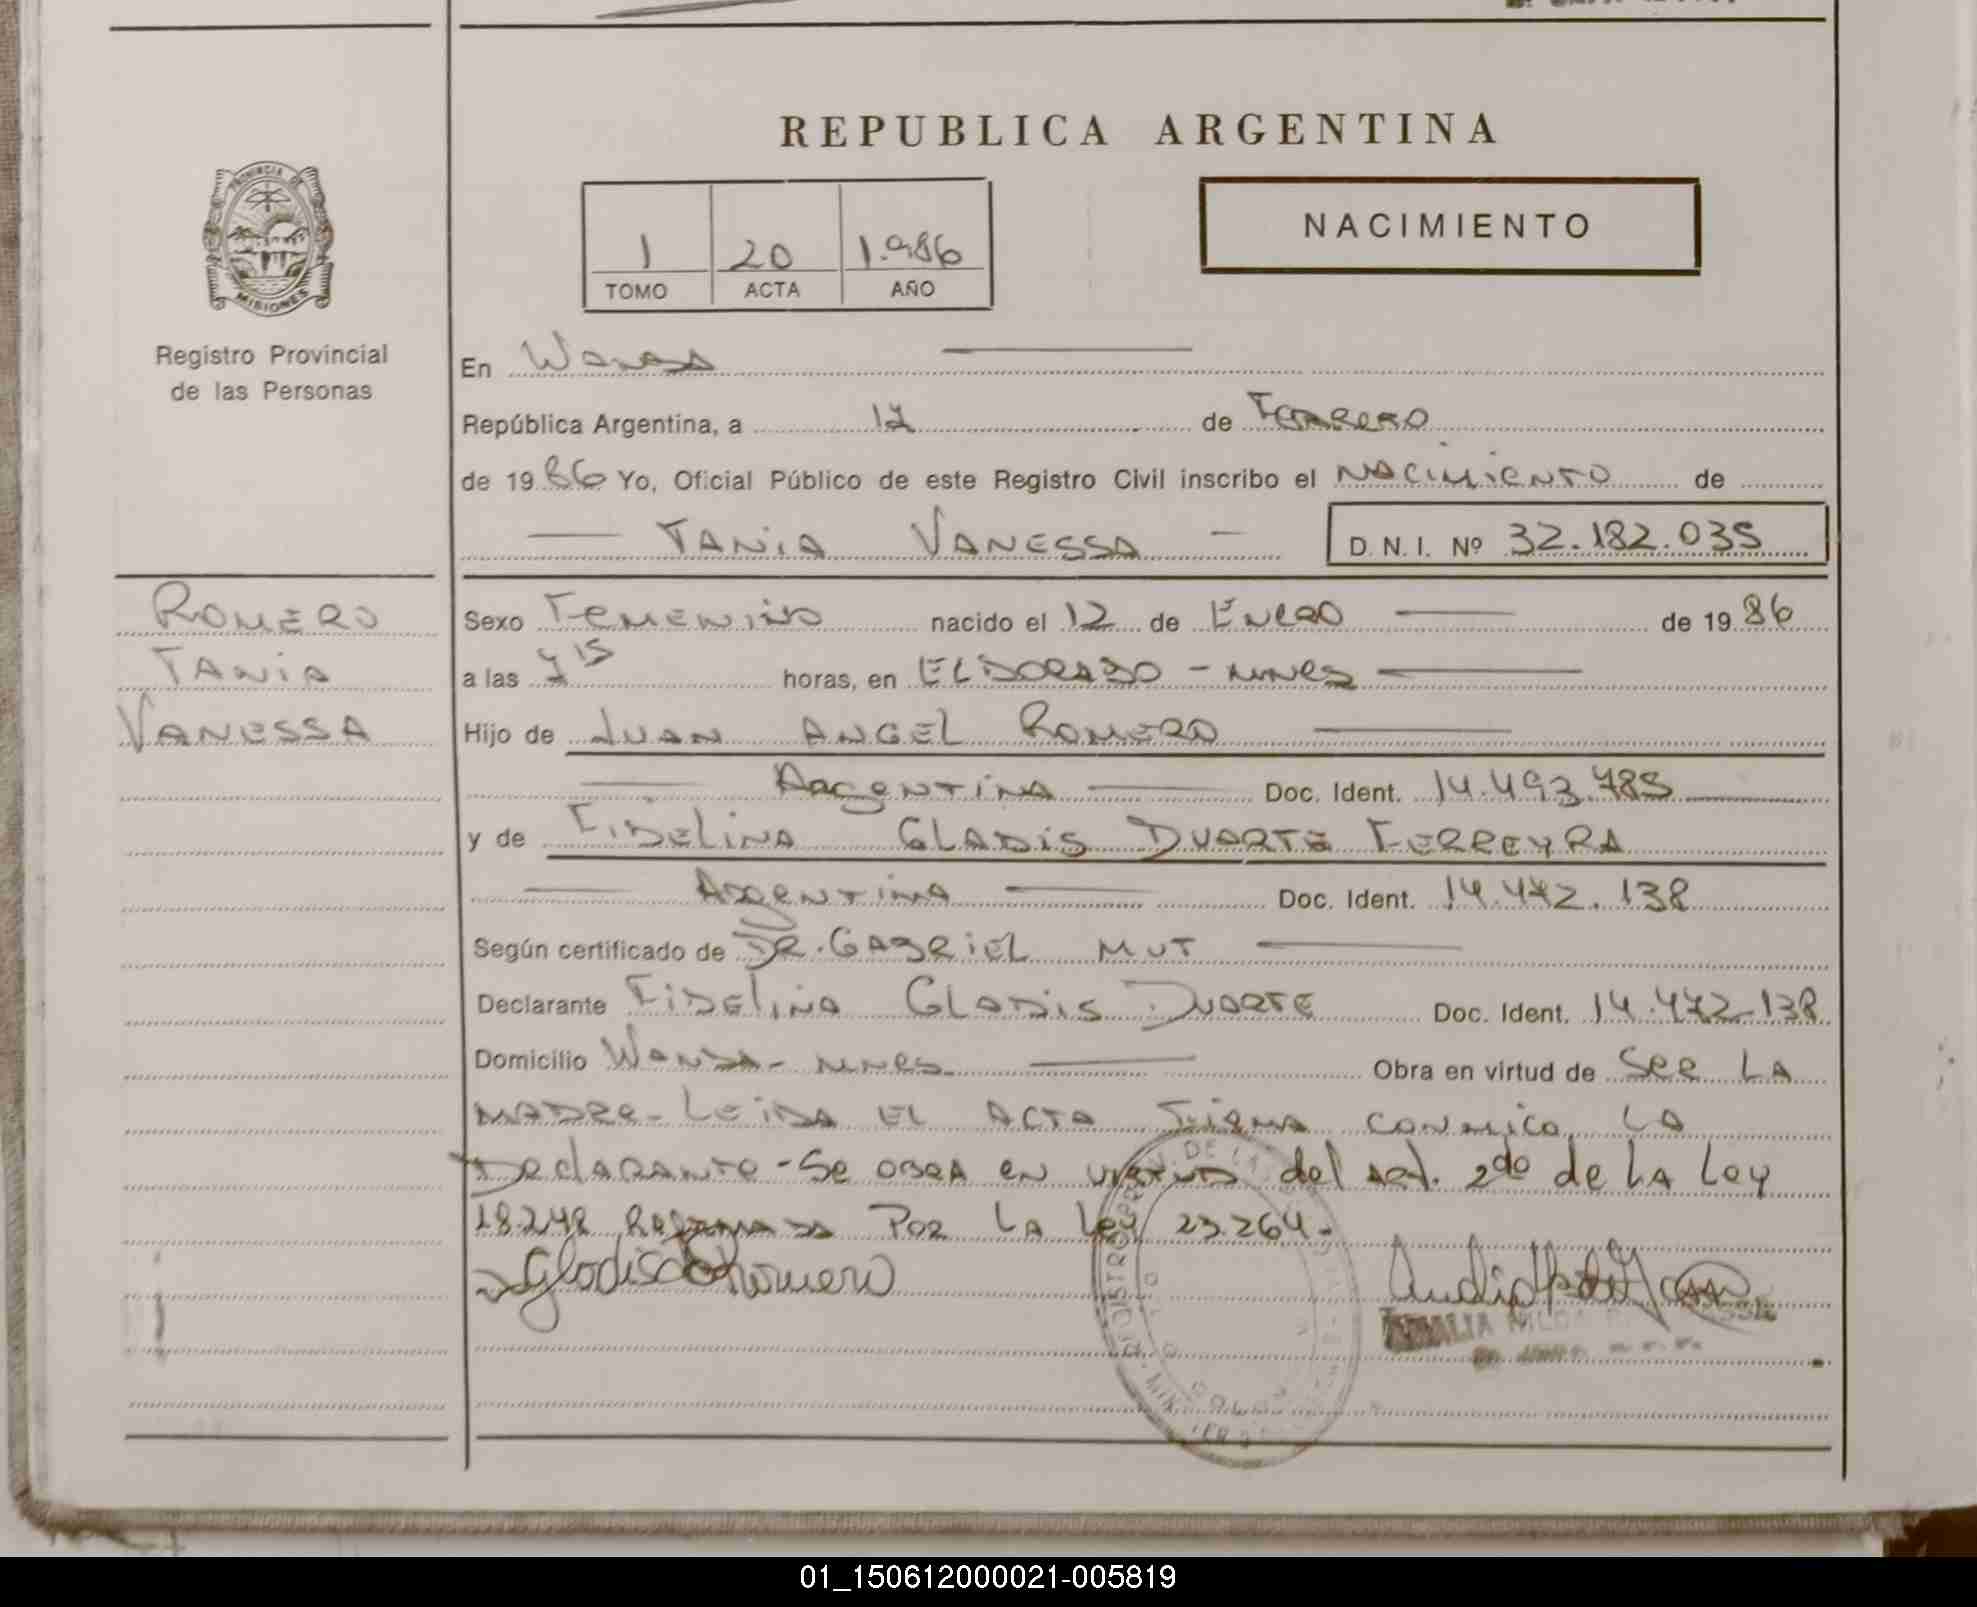 REPUBLICA ARGENTINA
NACIMIENTO
1 20 1.986
TOMO ACTA AÑO
PROVINCIA DE
MISIONES
Registro Provincial
de las Personas
En Wanda
República Argentina, a 17 de Febrero
de 19 86 Yo, Oficial Público de este Registro Civil inscribo el Nacimiento de
TANIA VANESSA D.N.I. Nº 32.182.035
ROMERO
TANIA
VANESSA
Sexo Femenino nacido el 12 de Enero de 19 86
a las 7 15 horas, en ELDORADO - MNES
Hijo de JUAN ANGEL ROMERO
Argentina Doc. Ident. 14.493.785
y de FIDELINA GLADIS DUARTE FERREYRA
Argentina Doc. Ident. 14.472.138
Según certificado de DR. GABRIEL MUT
Declarante FIDELINA GLADIS DUARTE Doc. Ident. 14.472-138
Domicilio Wanda - MNES Obra en virtud de SER LA
MADRE - LEIDA EL ACTA FIRMA CONMIGO LA
Declarante - Se OBRA en virtud del Art. 2do de LA Ley
18.248 Reformada Por LA Ley 23.264 -
Gladis Romero
01_150612000021-005819